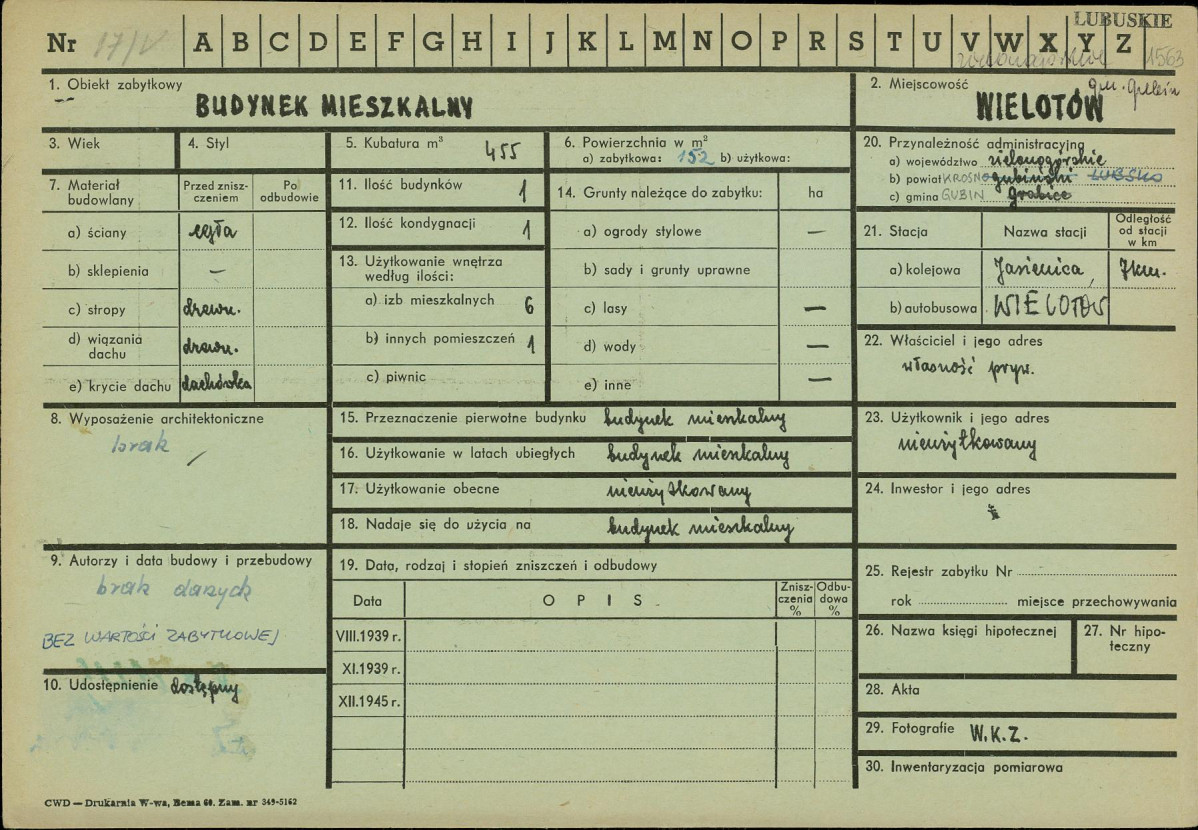 LUBUSKIE
Nr 17/V A B C D E F G H I J K L M N O P R S T U V W X Y Z
1563
1. Obiekt zabytkowy
BUDYNEK MIESZKALNY
2. Miejscowość gm. Gubin
WIELOTÓW
3. Wiek
4. Styl
5. Kubatura m³ 455
6. Powierzchnia w m²
a) zabytkowa: 152 b) użytkowa:
20. Przynależność administracyjną
a) województwo zielonogórskie
b) powiat KROSNO gubiński LUBSKO
c) gmina GUBIN Grabice
7. Materiał budowlany
Przed zniszczeniem
Po odbudowie
a) ściany cegła
b) sklepienia —
c) stropy drewn.
d) wiązania dachu drewn.
e) krycie dachu dachówka
11. Ilość budynków 1
12. Ilość kondygnacji 1
13. Użytkowanie wnętrza według ilości:
a) izb mieszkalnych 6
b) innych pomieszczeń 1
c) piwnic
14. Grunty należące do zabytku: ha
a) ogrody stylowe —
b) sady i grunty uprawne
c) lasy —
d) wody —
e) inne —
21. Stacja
Nazwa stacji
Odległość od stacji w km
a) kolejowa Jasienica, 7km.
b) autobusowa WIELOTÓW
22. Właściciel i jego adres
własność pryw.
8. Wyposażenie architektoniczne
brak
15. Przeznaczenie pierwotne budynku budynek mieszkalny
16. Użytkowanie w latach ubiegłych budynek mieszkalny
17. Użytkowanie obecne nieużytkowany
18. Nadaje się do użycia na budynek mieszkalny
23. Użytkownik i jego adres
nieużytkowany
24. Inwestor i jego adres
9. Autorzy i data budowy i przebudowy
brak danych
BEZ WARTOŚCI ZABYTKOWEJ
10. Udostępnienie dostępny
19. Data, rodzaj i stopień zniszczeń i odbudowy
Data
OPIS
Zniszczenia %
Odbudowa %
VIII.1939 r.
XI.1939 r.
XII.1945 r.
25. Rejestr zabytku Nr
rok miejsce przechowywania
26. Nazwa księgi hipotecznej
27. Nr hipoteczny
28. Akta
29. Fotografie W.K.Z.
30. Inwentaryzacja pomiarowa
CWD — Drukarnia W-wa, Bema 60. Zam. nr 349-5162